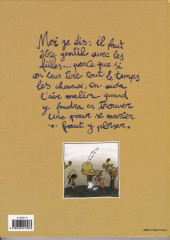 Moi je dis : il faut
être gentil avec les
filles... parce que si
on leur tire tout le temps
les cheveux, on aura
l'air malin quand
y faudra en trouver
une pour se marier
faut y penser.